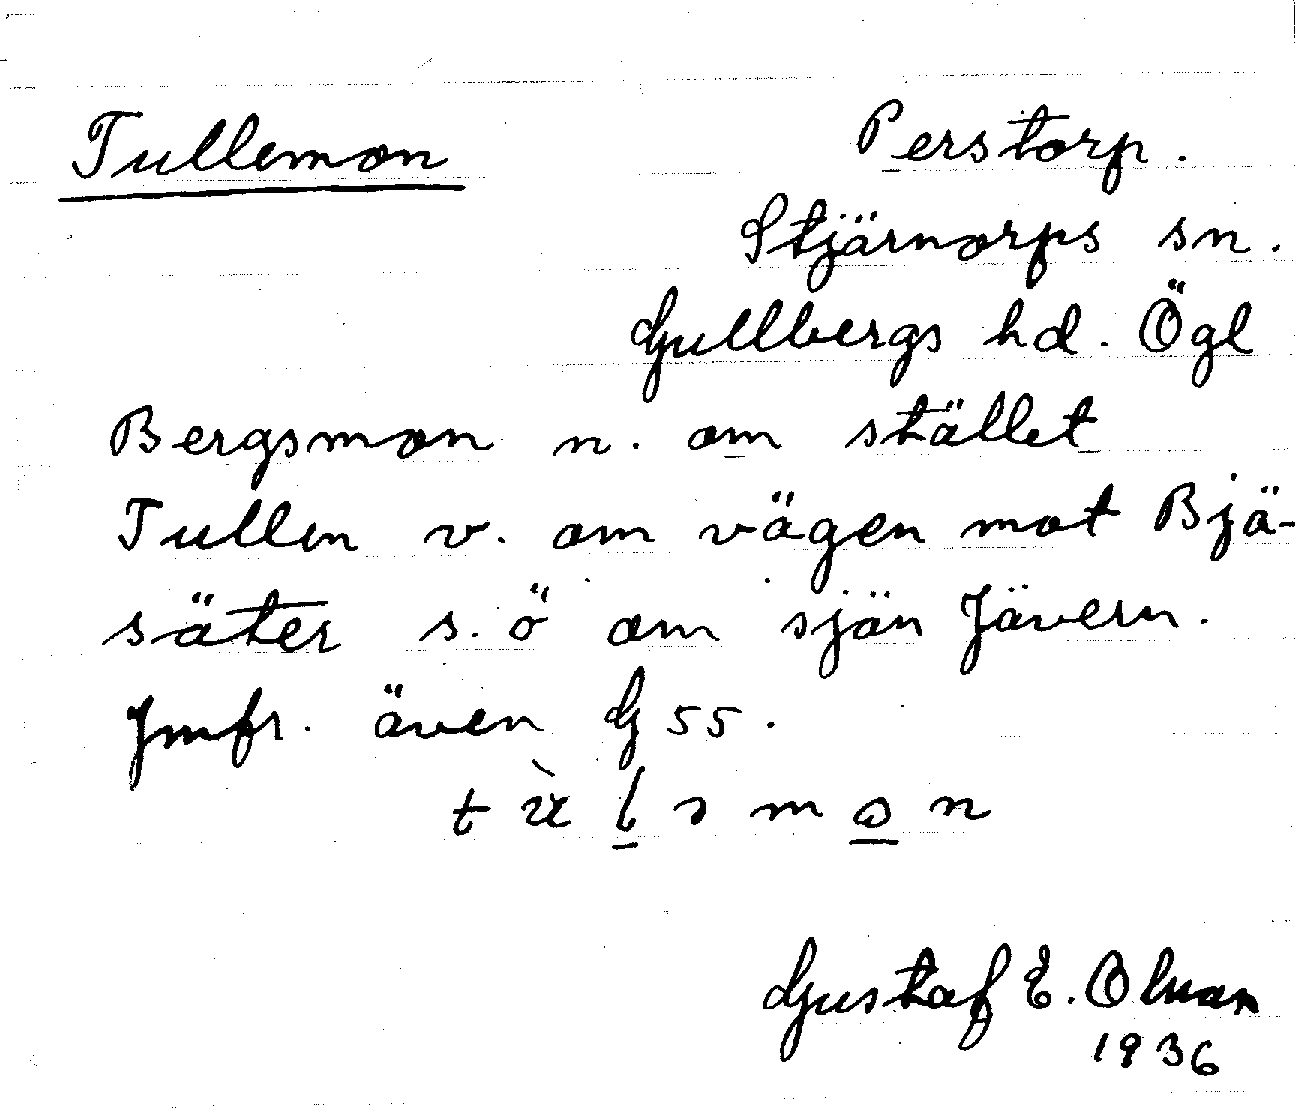 Tullemon Perstorp.
Stjärnorps sn.
Gullbergs hd. Ögl
Bergsmon n. om stället
Tullen v. om vägen mot Bjä-
säter s.ö om sjön Jävern.
Jmfr. även G 55.
Gustaf E. Olsson
1936